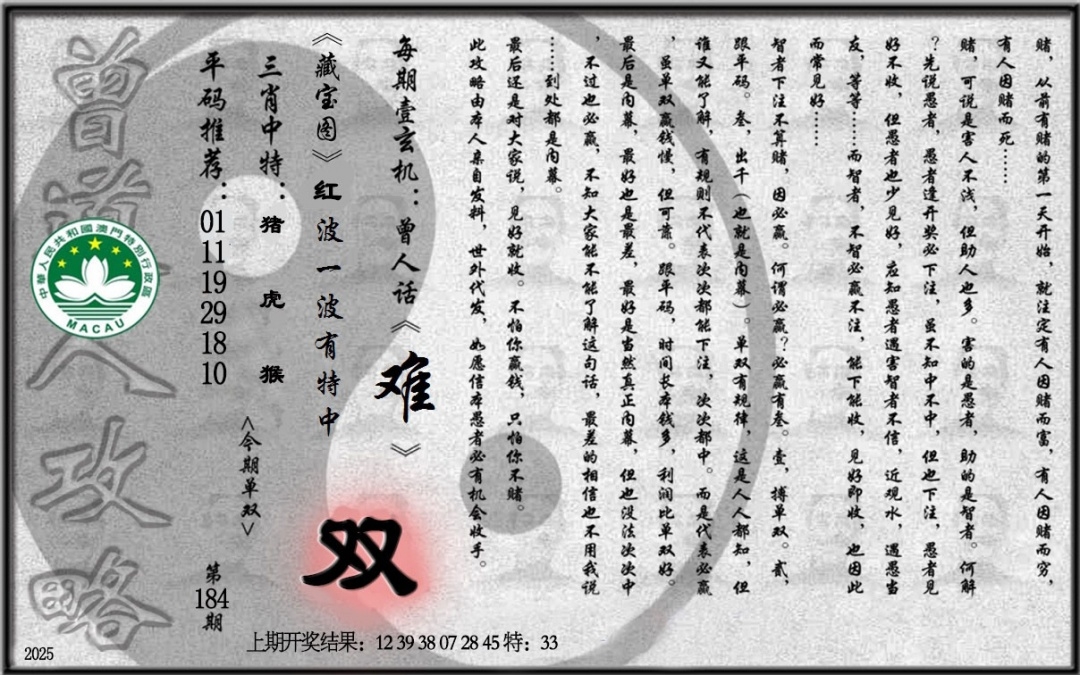 赌，从前有赌的第一天开始，就注定有人因赌而富，有人因赌而穷，
有人因赌而死……
赌，可说是害人不浅，但助人也多。害的是愚者，助的是智者。何解
？先说愚者，愚者逢开奖必下注，虽不知中不中，但也下注，愚者见
好不收，但愚者也少见好，应知愚者遇害智者不信，近观水，遇愚当
友，等等……而智者，不智必赢不注，能下能收，见好即收，也因此
而常见好……
智者下注不算赌，因必赢。何谓必赢？必赢有叁。壹，搏单双。贰，
跟平码。叁，出千（也就是内幕）。单双有规律，这是人人都知，但
谁又能了解，有规则不代表次次都能下注，次次都中。而是代表必赢
，虽单双赢钱慢，但可靠。跟平码，时间长本钱多，利润比单双好。
最后是内幕，最好也是最差，最好是当然真正内幕，但也没法次次中
，不过也必赢，不知大家能不能了解这句话，最差的相信也不用我说
……到处都是内幕。
最后还是对大家说，见好就收。不怕你赢钱，只怕你不赌。
此攻略由本人亲自发料，世外代发，如愿信本愚者必有机会收手。
每期壹玄机：曾人话《难》
《藏宝图》红波一波有特中
双
三肖中特：猪 虎 猴
<今期单双>
平码推荐：01 11 19 29 18 10
第184期
曾道人攻略
中華人民共和國澳門特別行政區
MACAU
上期开奖结果：12 39 38 07 28 45 特：33
2025